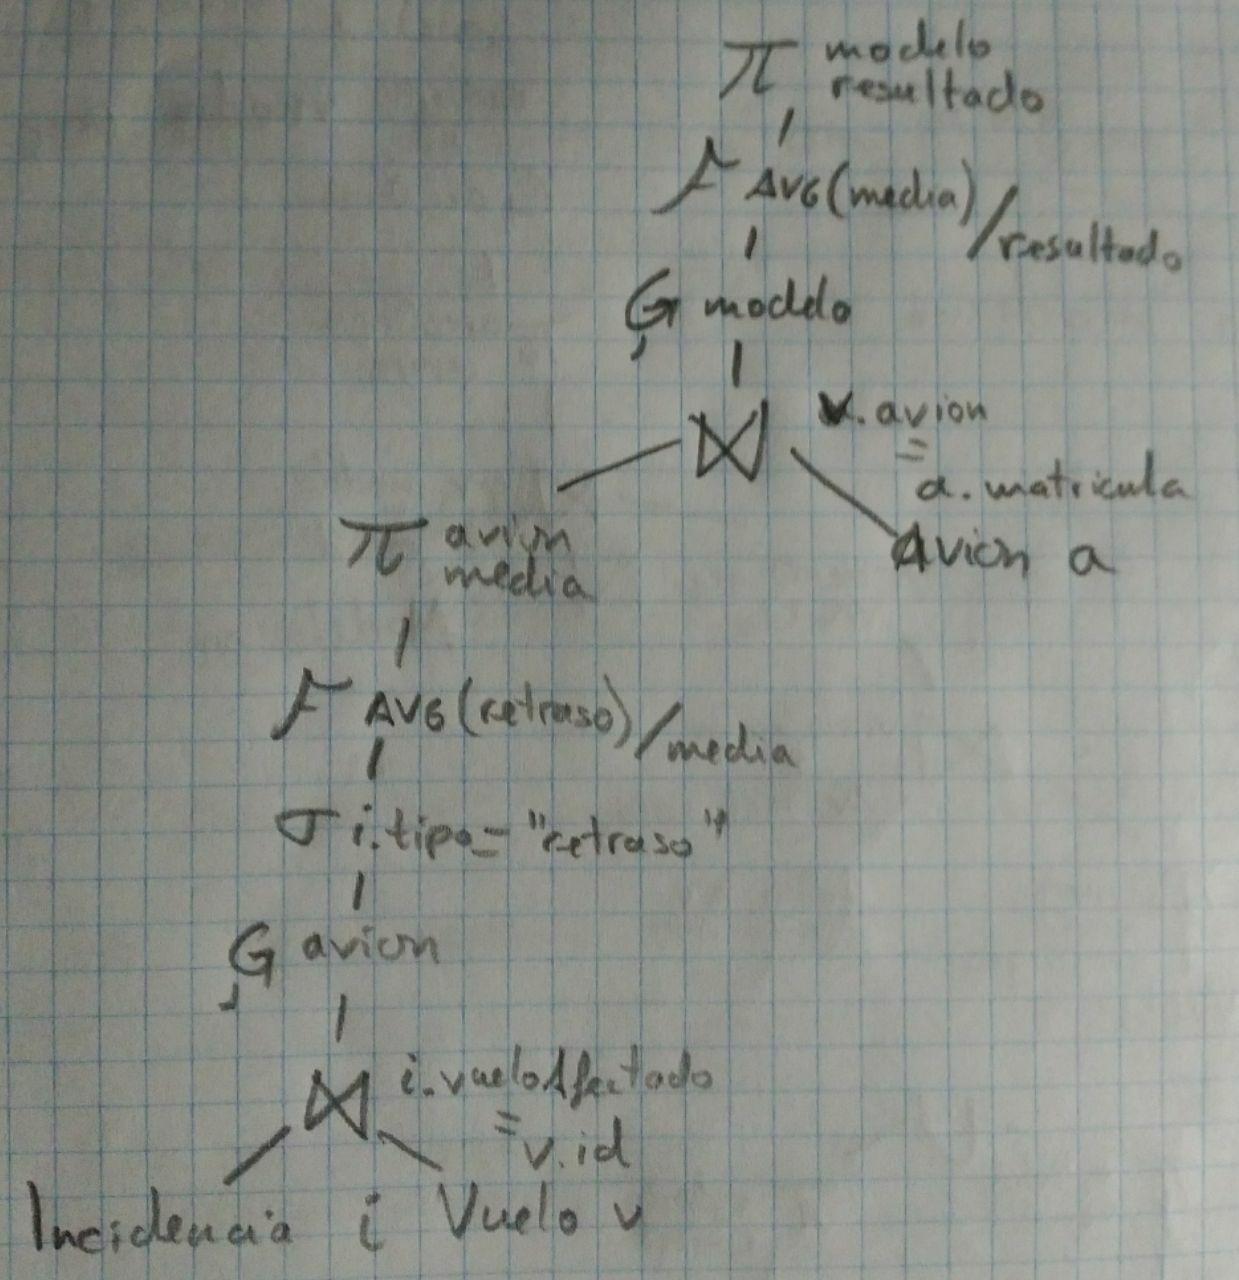 π modelo
resultado
F AVG(media)/resultado
G modelo
⋈ v.avion
=
a.matricula
Avion a
π avion
media
F AVG(retraso)/media
σ i.tipo="retraso"
G avion
⋈ i.vueloAfectado
=
v.id
Incidencia i Vuelo v